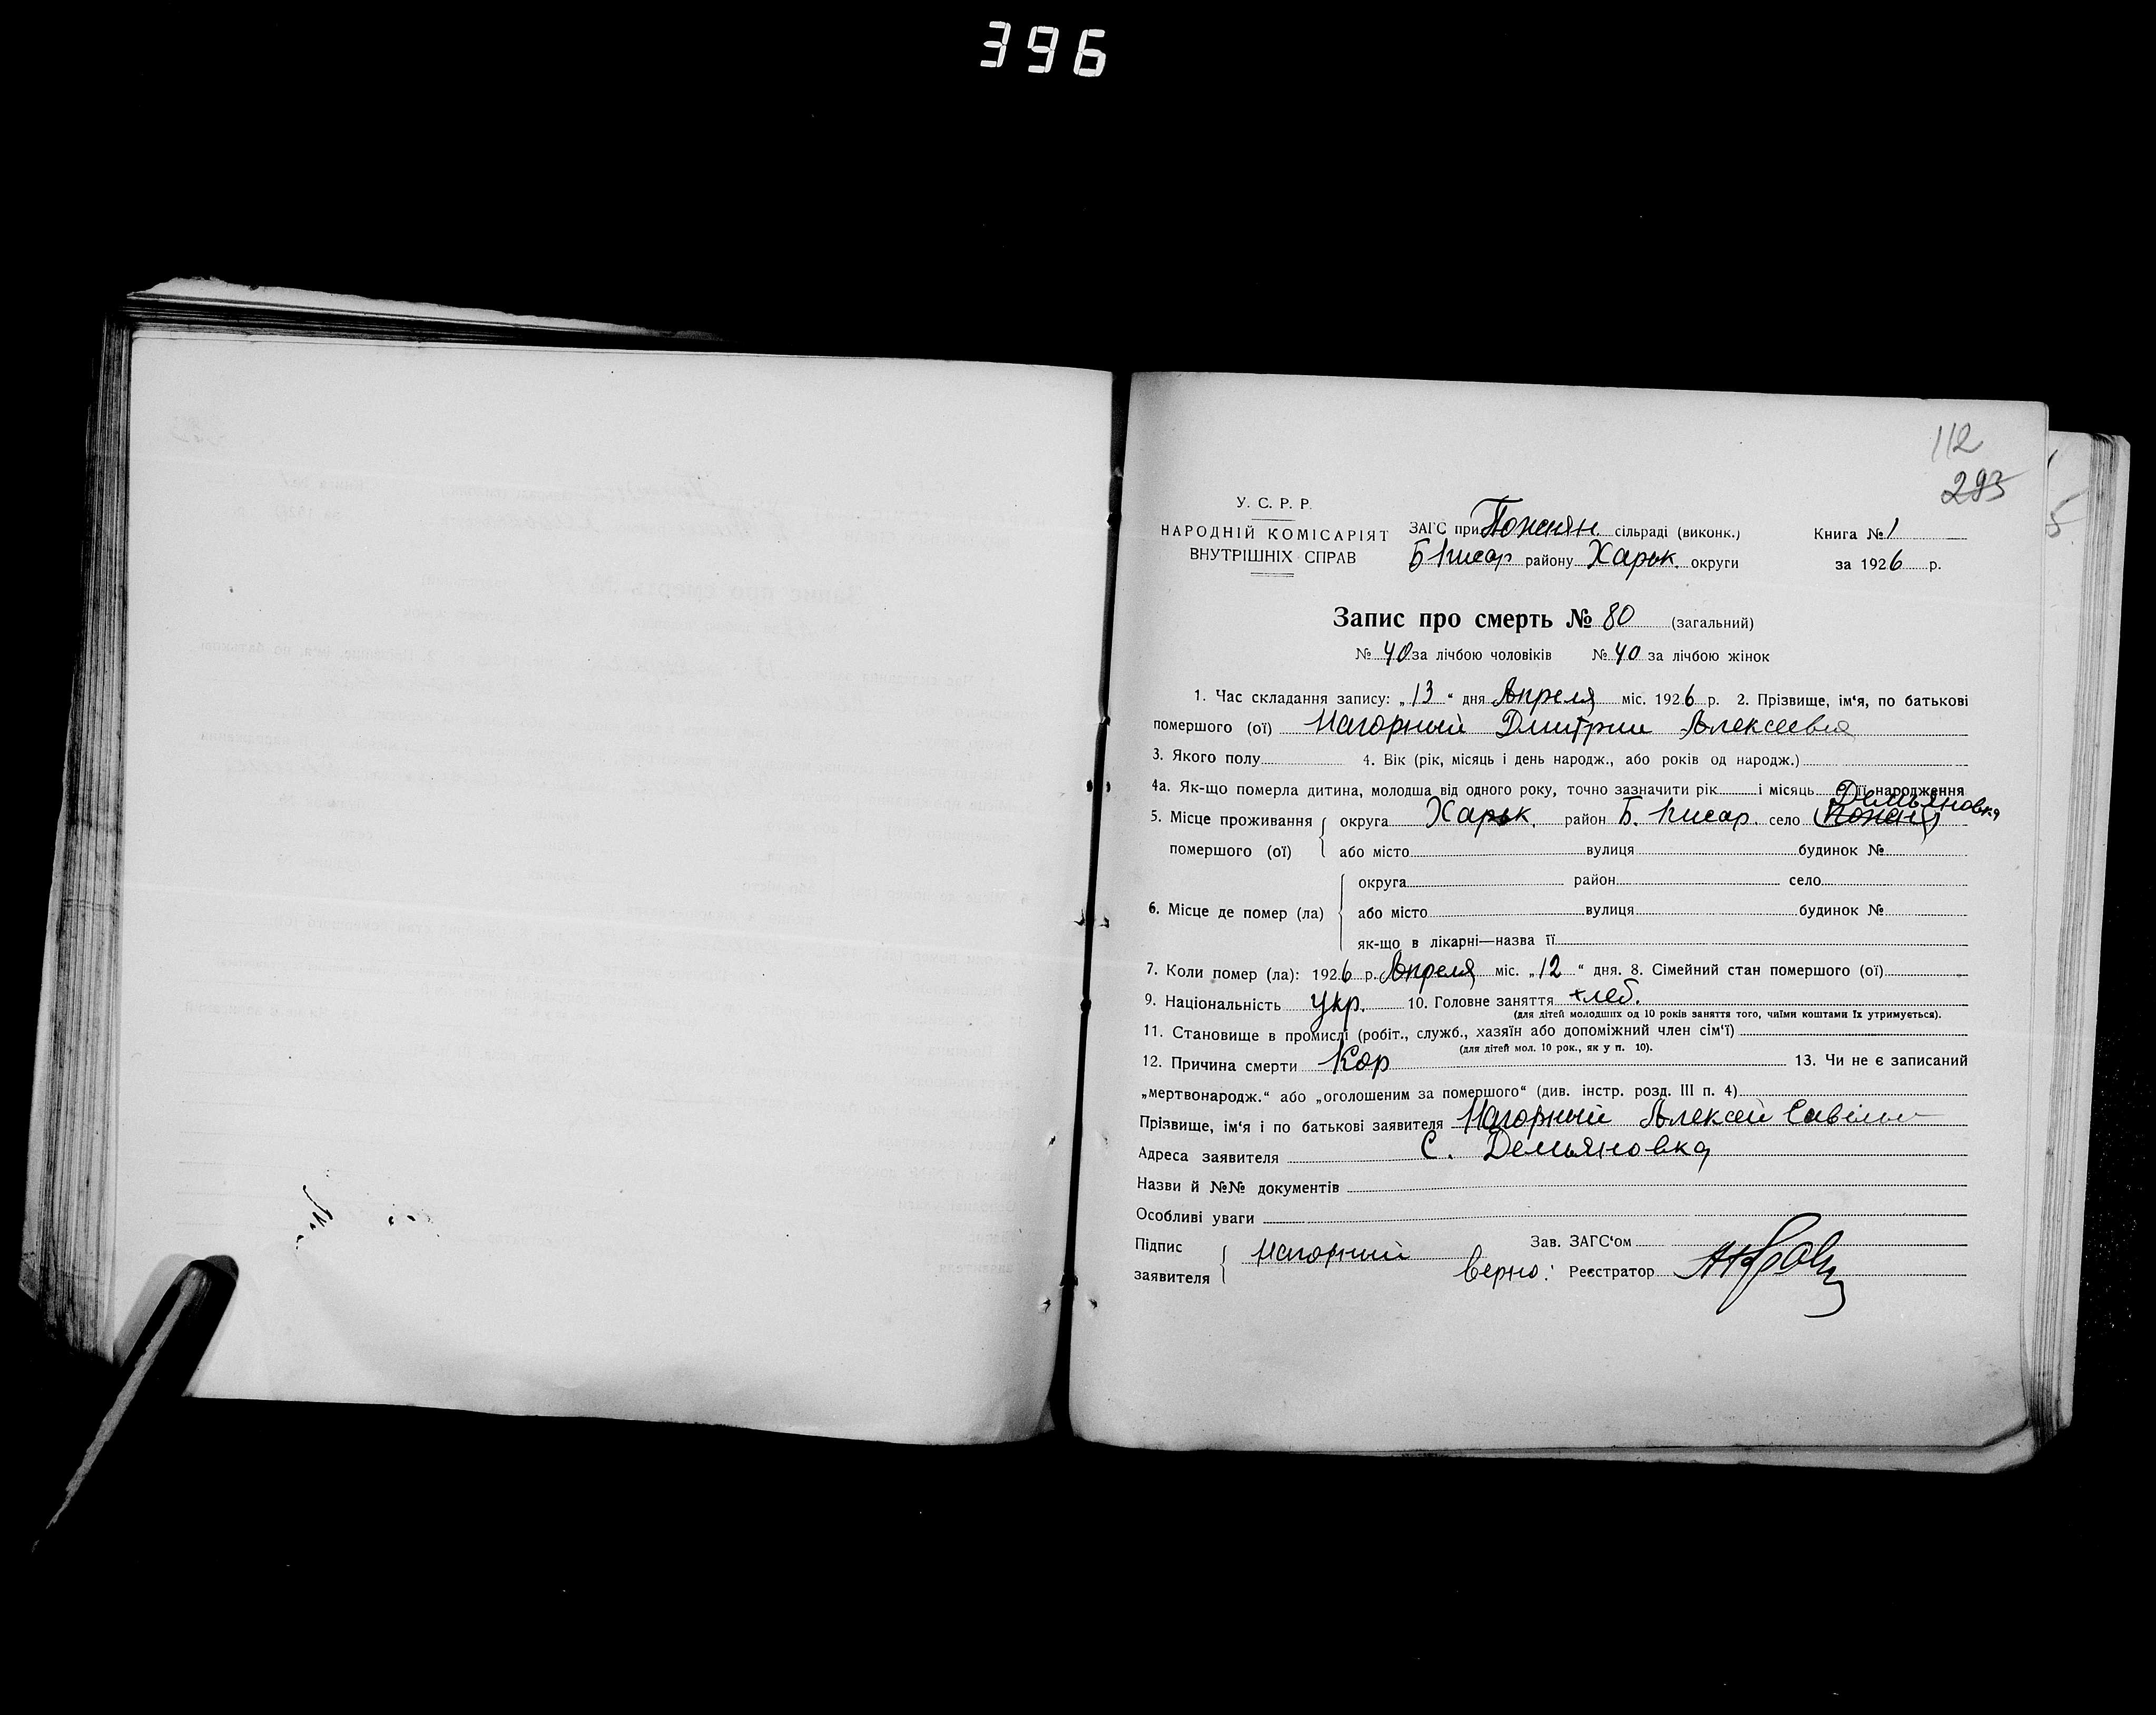 396
112
293
У. С. Р. Р.
НАРОДНІЙ КОМІСАРІЯТ
ВНУТРІШНІХ СПРАВ
ЗАГС при Понаян. сільраді (виконк.)
Б Писар району Харьк. округи
Книга № 1
за 1926 р.
Запис про смерть № 80 (загальний)
№ 40 за лічбою чоловіків № 40 за лічбою жінок
1. Час складання запису: „13“ дня Апреля міс. 1926 р. 2. Прізвище, ім'я, по батькові
помершого (ої) Нагорный Дмитрий Алексеевич
3. Якого полу 4. Вік (рік, місяць і день народж., або років од народж.)
4а. Як-що померла дитина, молодша від одного року, точно зазначити рік і місяць її народження
Демьяновка
5. Місце проживання помершого (ої) округа Харьк. район Б. Писар. село
або місто вулиця будинок №
6. Місце де помер (ла) округа район село
або місто вулиця будинок №
як-що в лікарні—назва її
7. Коли помер (ла): 1926 р. Апреля міс. „12“ дня. 8. Сімейний стан помершого (ої)
9. Національність укр. 10. Головне заняття хлеб.
(для дітей молодших од 10 років заняття того, чиїми коштами їх утримується).
11. Становище в промислі (робіт., служб., хазяїн або допоміжний член сім'ї)
(для дітей мол. 10 рок., як у п. 10).
12. Причина смерти Кор 13. Чи не є записаний
„мертвонародж.“ або „оголошеним за помершого“ (див. інстр. розд. III п. 4)
Прізвище, ім'я і по батькові заявителя Нагорный Алексей
Адреса заявителя С. Демьяновка
Назви й №№ документів
Особливі уваги
Підпис заявителя Нагорный
Зав. ЗАГС'ом
Верно: Реєстратор